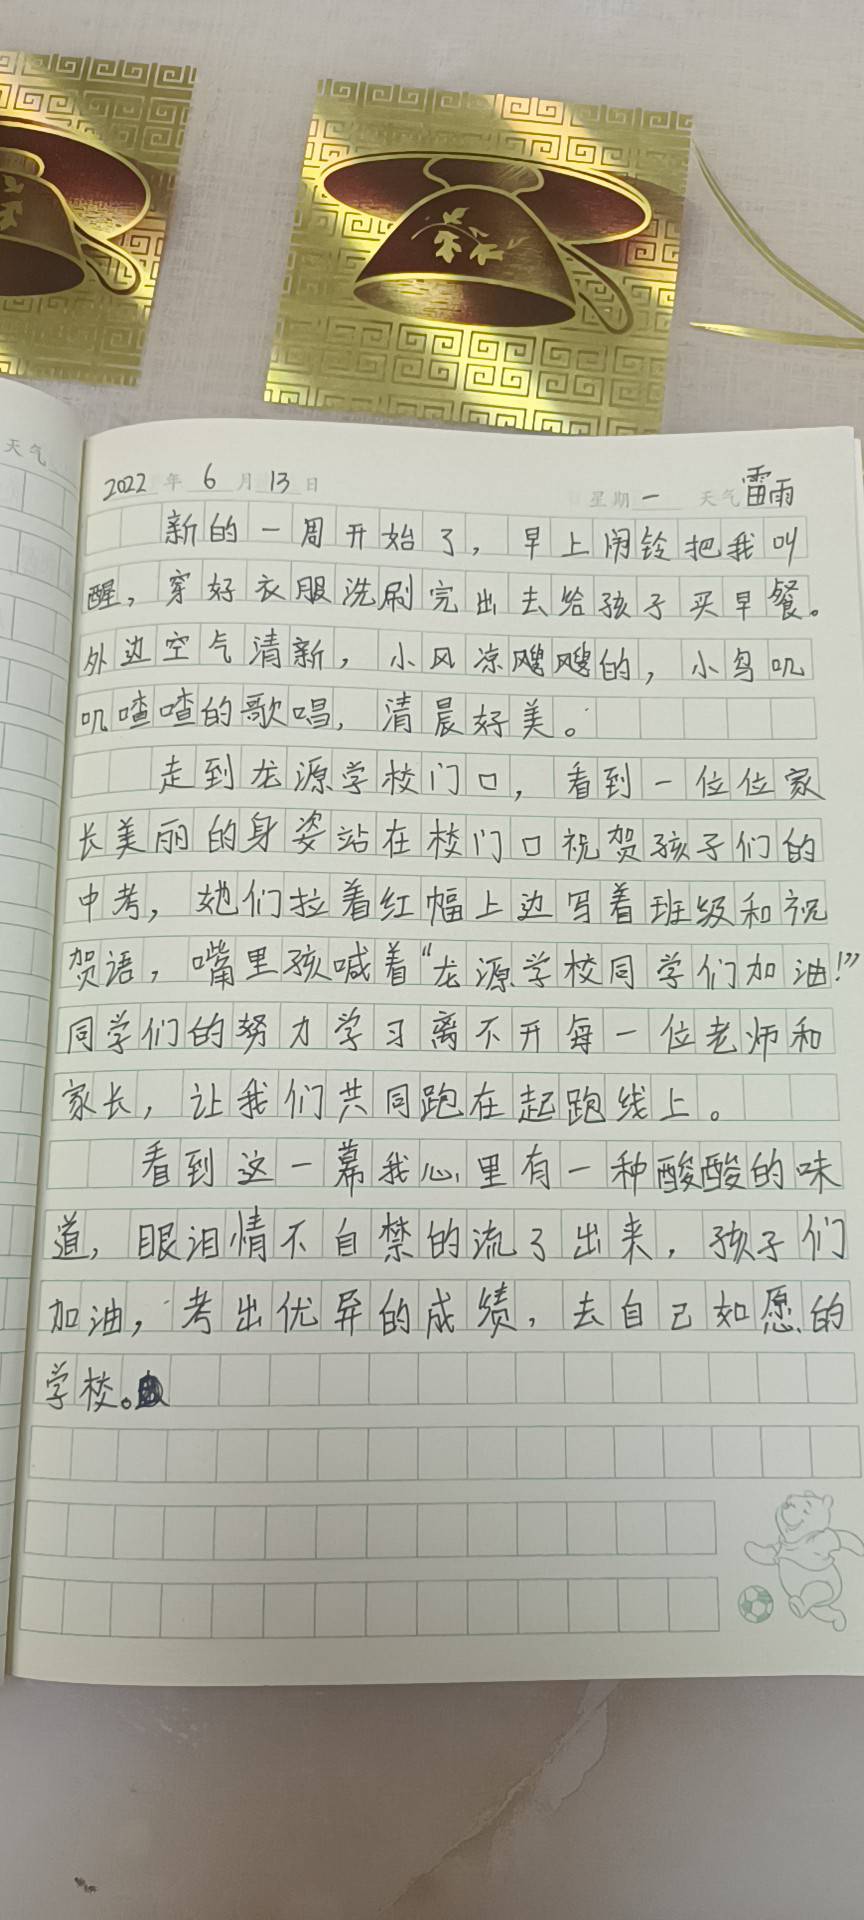 天气
2022年6月13日 星期一 天气雷雨
新的一周开始了，早上闹铃把我叫
醒，穿好衣服洗刷完出去给孩子买早餐。
外边空气清新，小风凉飕飕的，小鸟叽
叽喳喳的歌唱，清晨好美。
走到龙源学校门口，看到一位位家
长美丽的身姿站在校门口祝贺孩子们的
中考，她们拉着红幅上边写着班级和祝
贺语，嘴里孩喊着“龙源学校同学们加油！”
同学们的努力学习离不开每一位老师和
家长，让我们共同跑在起跑线上。
看到这一幕我心里有一种酸酸的味
道，眼泪情不自禁的流了出来，孩子们
加油，考出优异的成绩，去自己如愿的
学校。